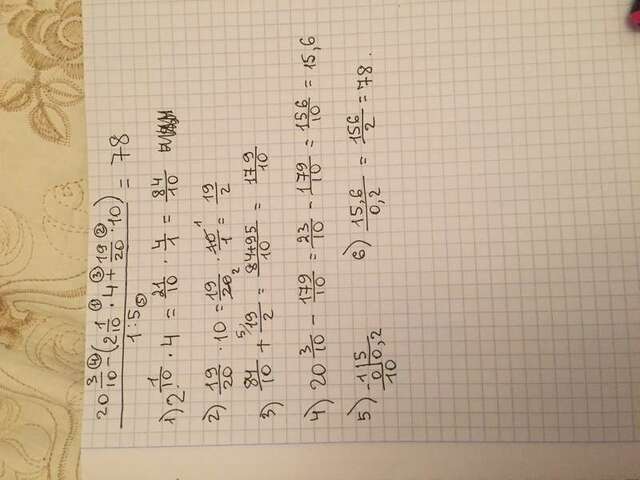 20 3/10 - (2 1/10 · 4 + 19/20 · 10) / 1:5 = 78
④ ① ③ ② ⑤
1) 2 1/10 · 4 = 21/10 · 4/1 = 84/10
2) 19/20 · 10 = 19/20 · 10/1 = 19/2
3) 84/10 + 19/2 = 84+95/10 = 179/10
4) 20 3/10 - 179/10 = 23/10 - 179/10 = 156/10 = 15,6
5) -1 | 5
0 | 0,2
10
6) 15,6/0,2 = 156/2 = 78.